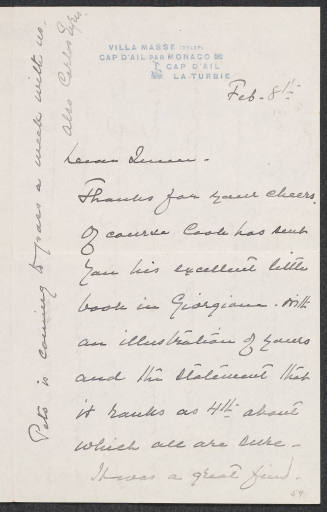 VILLA MASSE
CAP D'AIL PAR MONACO
CAP D'AIL
LA TURBIE
Feb. 8th
Dear
Thanks for your cheers.
Of course Cook has sent
you his excellent little
book in Giorgione. With
an illustration of yours
and the statement that
it ranks as 4th about
which all are sure -
It was a great find.
Pets is coming to pass a week with us.
also Carlos